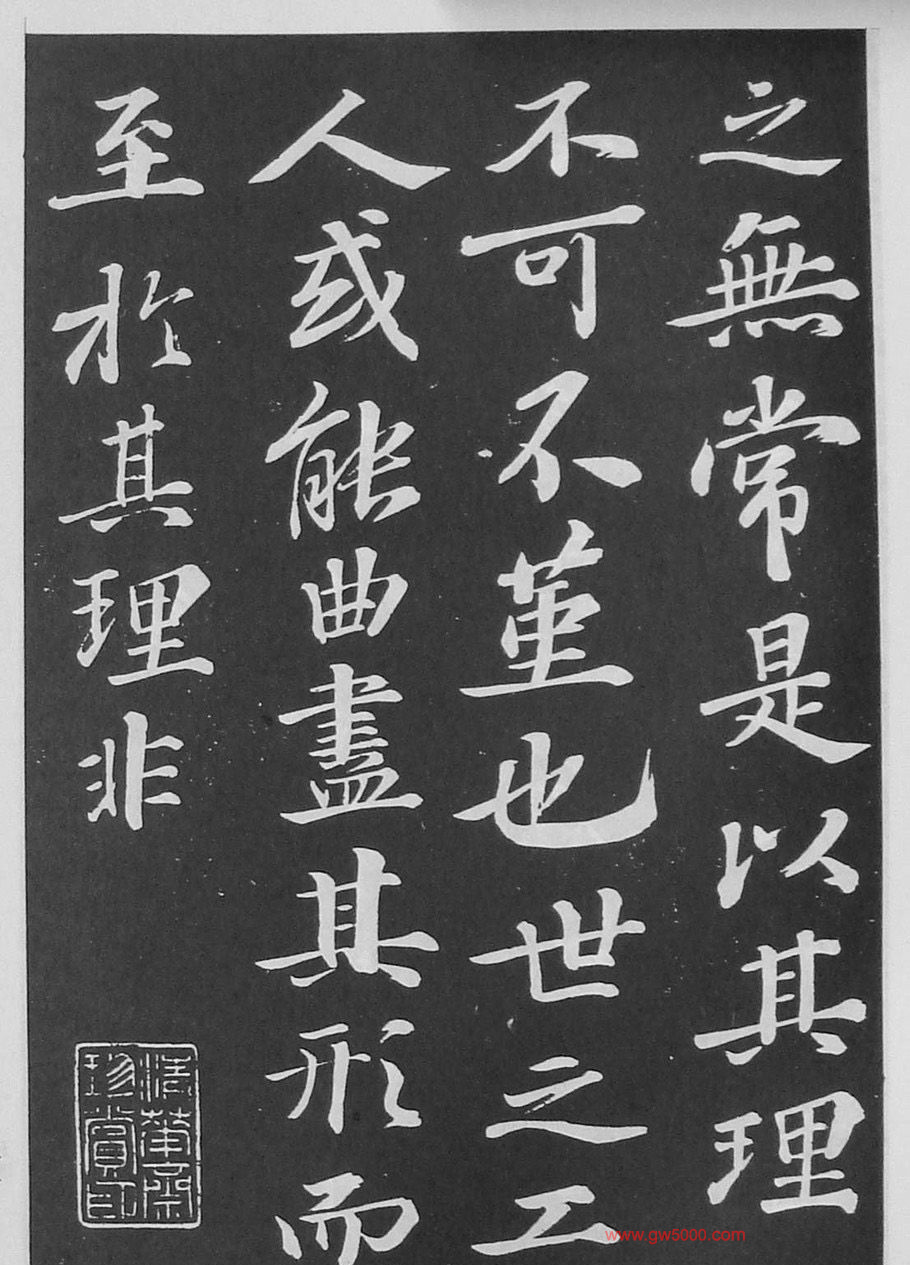 之無常是以其理
不可不堇也世之工
人或能曲盡其形而
至於其理非
珍賞印
www.gw5000.com